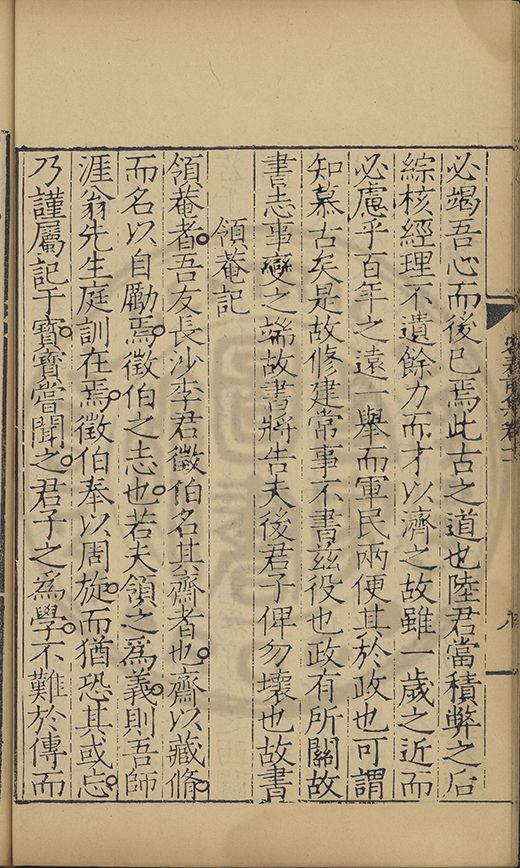 必竭吾心而後已焉此古之道也陸君當積弊之后
綜核經理不遺餘力而才以濟之故雖一歲之近而
必慮乎百年之遠一舉而軍民兩便其於政也可謂
知慕古矣是故修建常事不書茲役也政有所關故
書志事變之端故書將告夫後君子俾勿壞也故書
領菴記
領菴者吾友長沙李君徵伯名其齋者也齋以藏脩
而名以自勵焉徵伯之志也若夫領之爲義則吾師
涯翁先生庭訓在焉徵伯奉以周旋而猶恐其或忘
乃謹屬記于寶寶嘗聞之君子之爲學不難於傳而